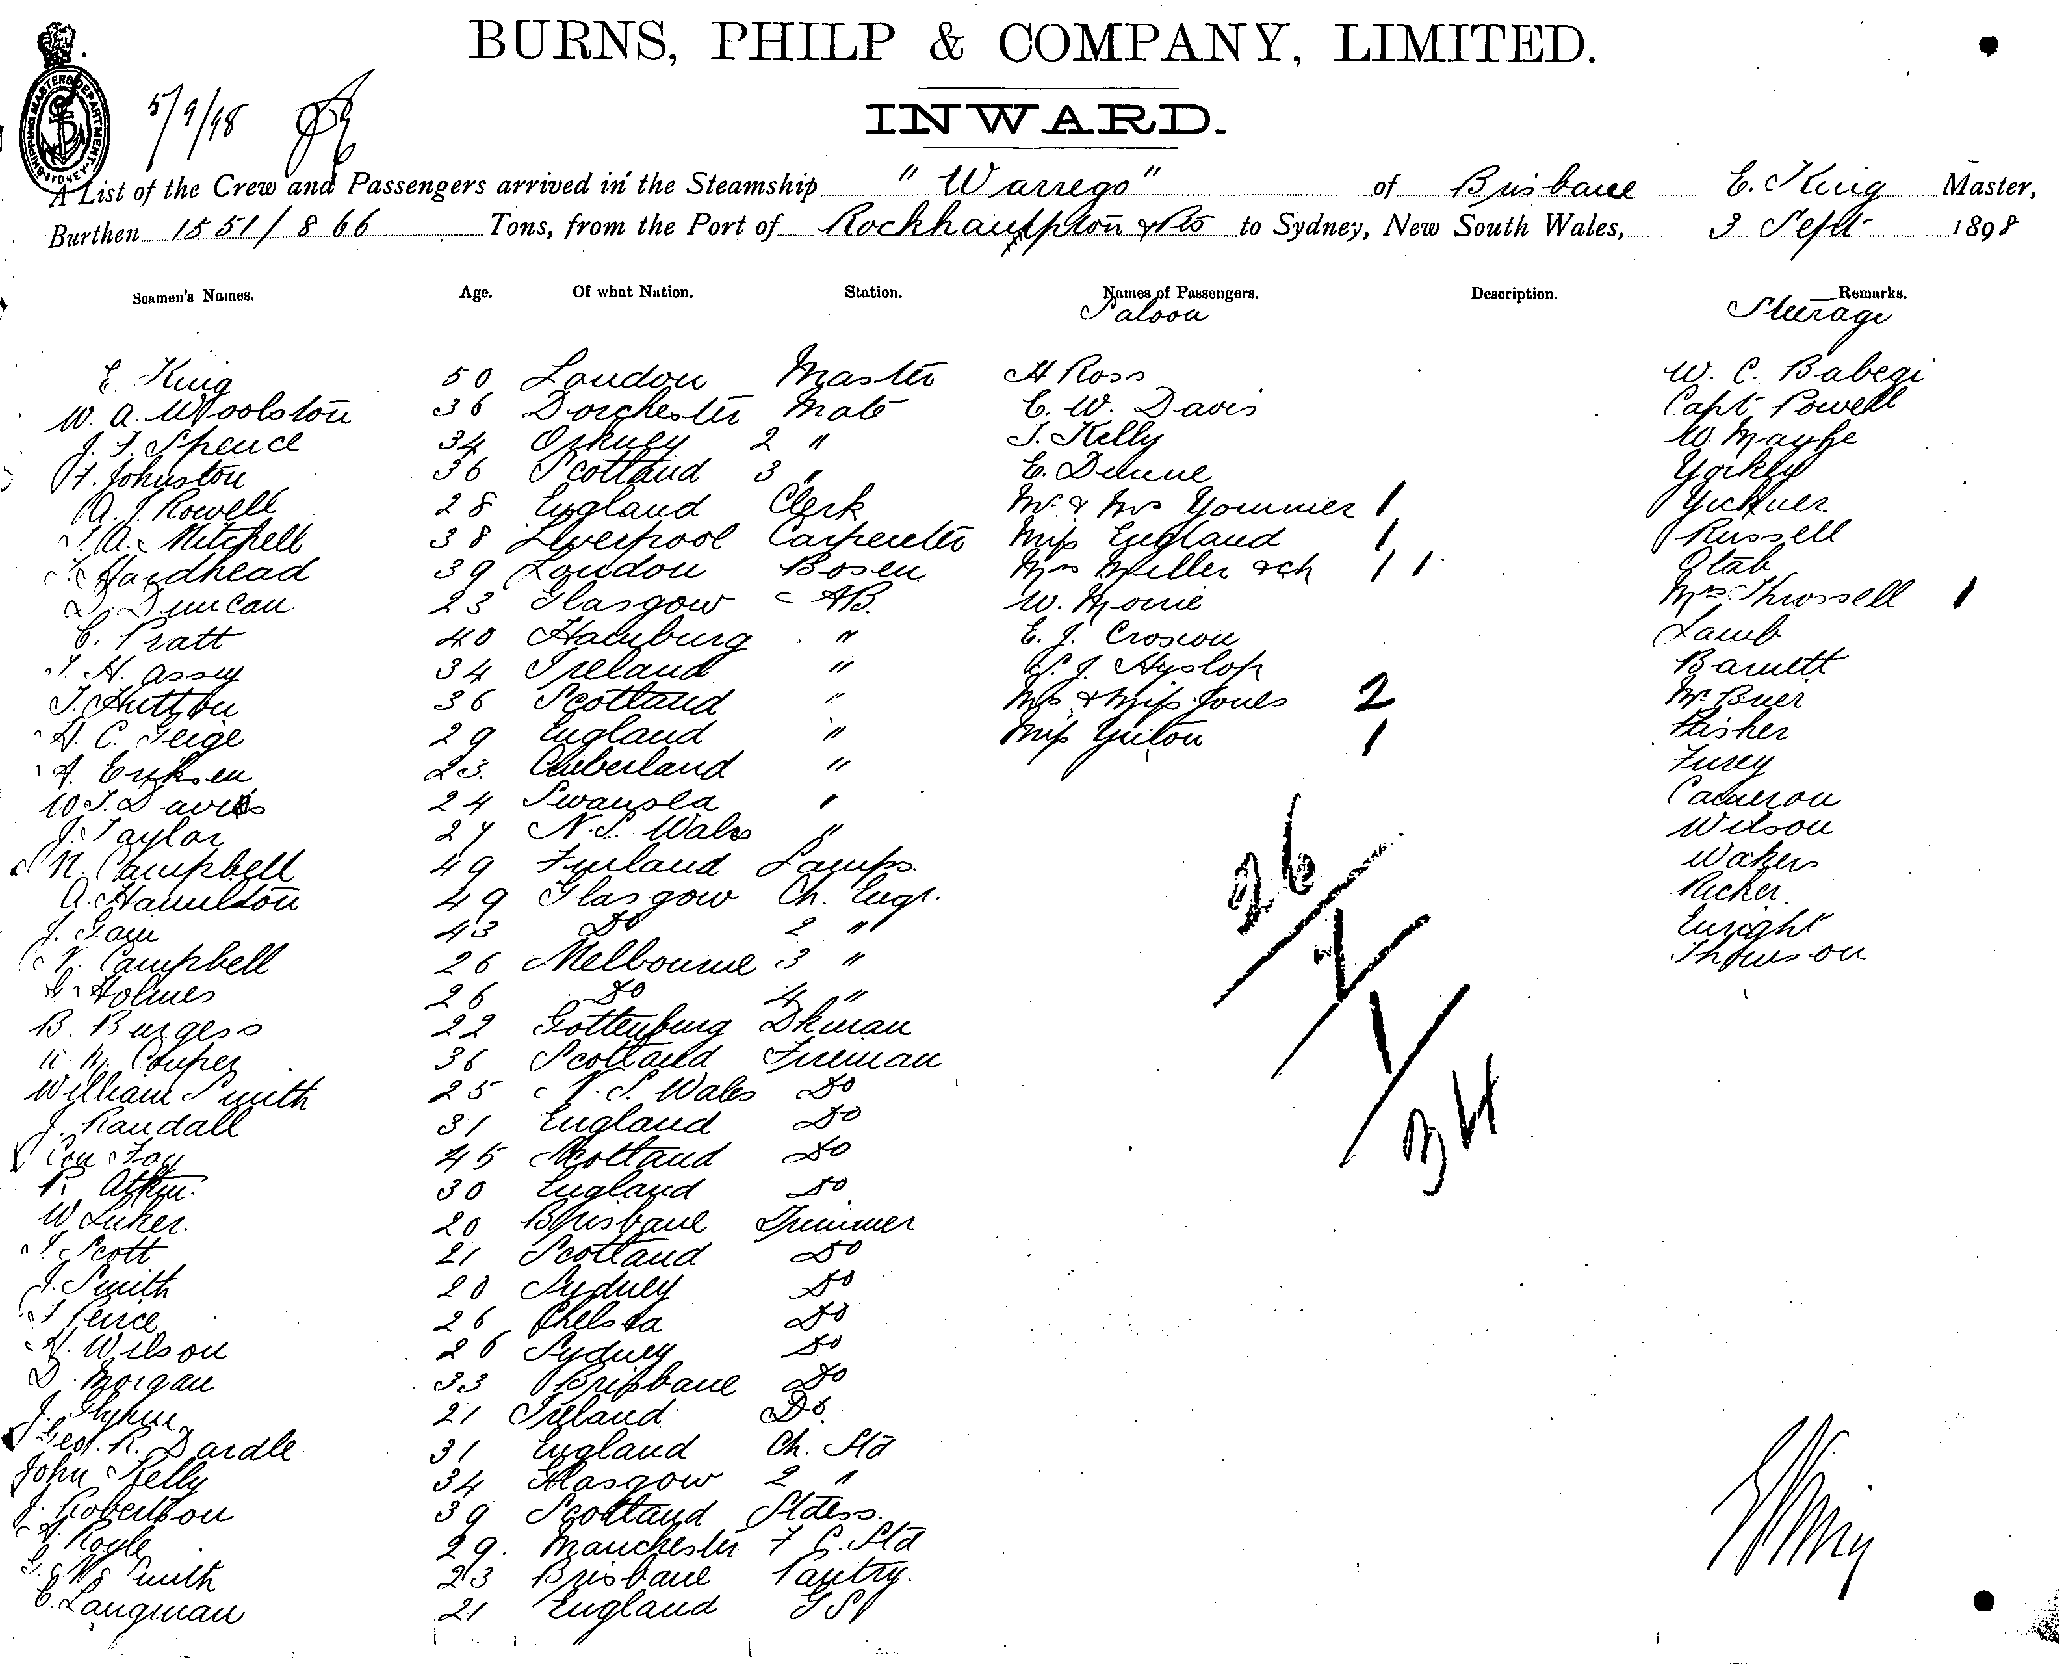 BURNS, PHILP & COMPANY, LIMITED.
INWARD.
5/9/98
SHIPPING MASTERS DEPARTMENT SYDNEY
A List of the Crew and Passengers arrived in the Steamship "Warrego" of Brisbane E. King Master,
Burthen 1551/866 Tons, from the Port of Rockhampton & Pts to Sydney, New South Wales, 3 Sept 1898
Seamen's Names. Age. Of what Nation. Station. Names of Passengers. Description. Remarks.
Saloon Steerage
E. King 50 London Master H Ross W. C. Babegi
W. A. Woolston 36 Dorchester Mate E. W. Davis Capt Powell
J. T. Spence 34 Orkney 2 " T. Kelly W. Mayhe
H. Johnston 36 Scotland 3 " E. Dunne Yorkey
A. J. Rowell 28 England Clerk Mr & Mrs Yommer 1
A. Mitchell 38 Liverpool Carpenter Miss England 1 Russell
Hardhead 39 London Bosen Mrs Miller & ch 1 1
D. Duncan 23 Glasgow AB. W. Morrie Mrs Krossell 1
C. Pratt 40 Hamburg " E. J. Lamb
T. H. assey 34 Ireland " J. Hyslop Barnett
T. Hutton 36 Scotland " Mrs & Miss Jones 2 Mr Buer
H. C. Feige 29 England " Miss 1 Fisher
A. Eriksen 23. Cuberland " Furey
W. T. Davies 24 Swansea " Cameron
J. Taylor 27 N. S. Wales " Wilson
N. Campbell 49 Finland Lamps. Wakers
A. Hamilton 49 Glasgow Ch. Engr. Richer.
J. Gam 43 Do 2 " Enright
N. Campbell 26 Melbourne 3 " Thomson
G. Holmes 26 Do 4 "
B. Burgess 22 Gottenburg Dkman
Couper 36 Scotland Fireman
William Smith 25 N. S. Wales Do
J. Randall 31 England Do
Con Foy 45 Scotland Do
P. Atkin. 30 England Do
W Luker. 20 Brisbane Trimmer
T. Scott 21 Scotland Do
J. Smith 20 Sydney Do
Peirce 26 Chelsea Do
H. Wilson 26 Sydney Do
D. Morgan 33 Brisbane Do
J. Flynn 21 Ireland Do.
Geo. R. Dardle 31 England Ch. Std
John Kelly 34 Glasgow 2 "
J. Robertson 39 Scotland Stdess.
A. Royle 29. Manchester F C. Std
G. W. Smith 23 Brisbane Pantry.
C. Langman 21 England G S
26
7
1
34
E King